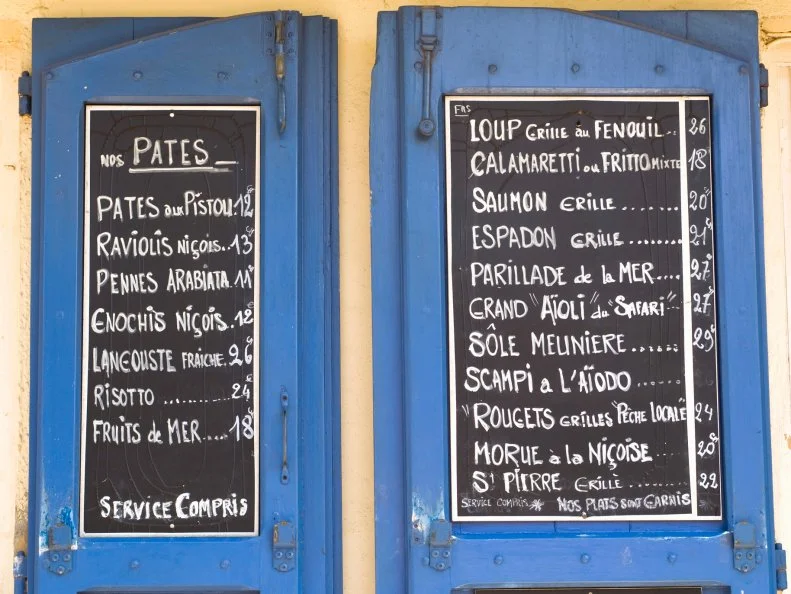 NOS PATES
PATES aux PISTOU. 12€
RAVIOLIS NIÇOIS.. 13€
PENNES ARABIATA. 11€
GNOCHIS NIÇOIS.. 12€
LANGOUSTE FRAICHE. 26€
RISOTTO ......... 24€
FRUITS de MER.... 18€
SERVICE COMPRIS
LOUP GRILLE au FENOUIL.. 26
CALAMARETTI ou FRITTO MIXTE 18€
SAUMON GRILLE ....... 20€
ESPADON GRILLE ........ 21€
PARILLADE de la MER.... 27€
GRAND "AÏOLI" du "SAFARI" 27€
SÔLE MEUNIERE ...... 29€
SCAMPI a L'AÏODO ......
"ROUGETS GRILLES "PÊCHE LOCALE" 24
MORUE à la NIÇOISE ..... 20€
St PIERRE GRILLÉ ......... 22
SERVICE COMPRIS * NOS PLATS SONT GARNIS